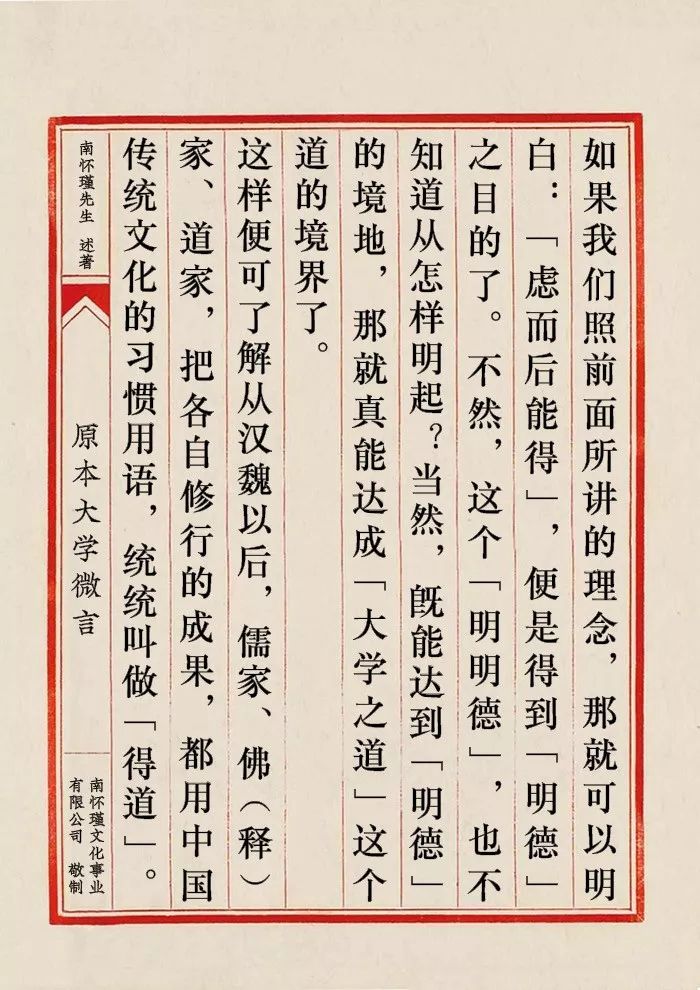 如果我们照前面所讲的理念，那就可以明
白：「虑而后能得」，便是得到「明德」
之目的了。不然，这个「明明德」，也不
知道从怎样明起？当然，既能达到「明德」
的境地，那就真能达成「大学之道」这个
道的境界了。
这样便可了解从汉魏以后，儒家、佛（释）
家、道家，把各自修行的成果，都用中国
传统文化的习惯用语，统统叫做「得道」。
南怀瑾先生 述著
原本大学微言
南怀瑾文化事业
有限公司 敬制